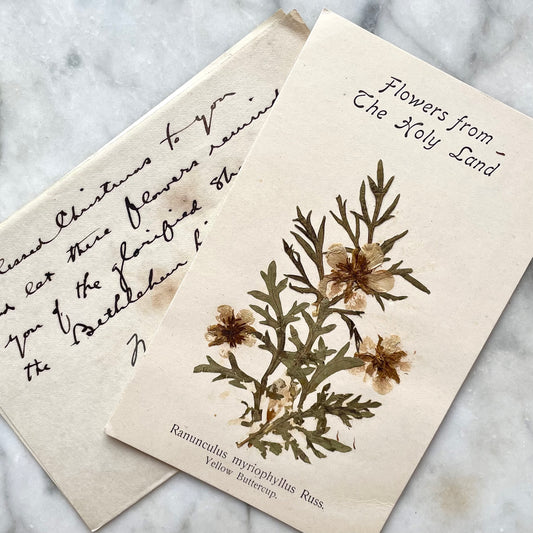 lessed Christmas to you
let these flowers remind
you of the glorified
the Bethlehem
Flowers from
The Holy Land
Ranunculus myriophyllus Russ.
Yellow Buttercup.